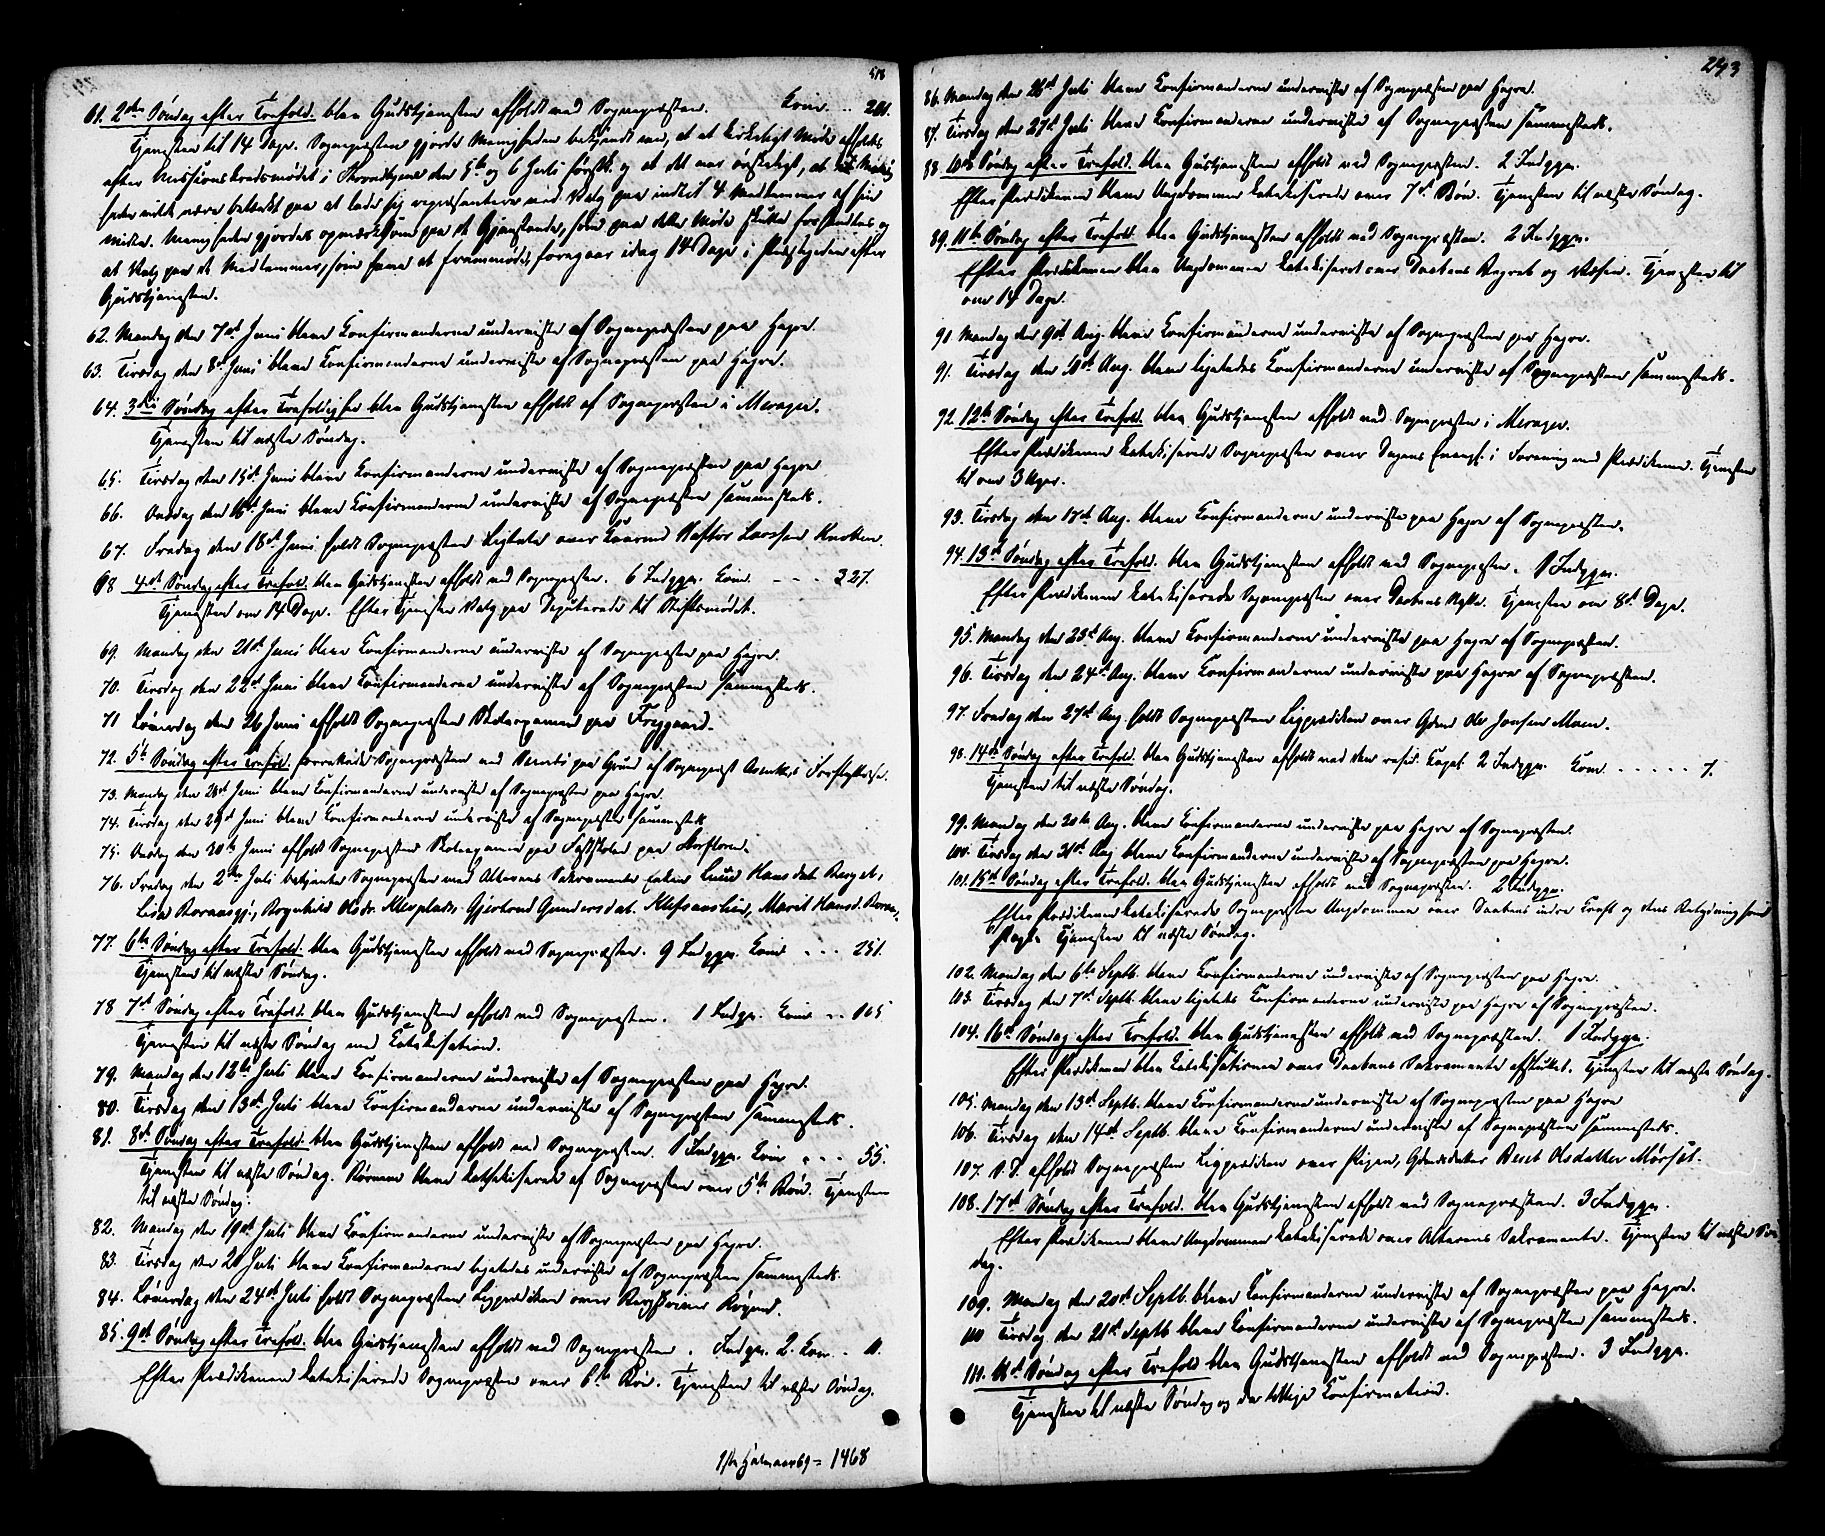 518
61. 2den Søndag efter Trefold. blev Gudstjenesten afholdt ved Sognepræsten. Kom. .. 201.
Tjenesten til 14 Dage. Sognepræsten gjorde Menigheden bekjendt med, at et kirkeligt Møde afholdes
efter Missionskredsmødet i Throndhjem den 5te og 6 Juli førstk. og at det var ønskeligt, at
heden vilde være betænkt paa at lade sig repræsentere ved Valg paa indtil 4 Medlemmer af sin
Midte. Menigheden gjordes opmærksom paa de Gjenstande, som paa dette Møde skulde forhandles og
at Valg paa de Medlemmer, som have at fremmøde, foregaar idag 14 Dage i Præstegaarden efter
Gudstjenesten.
62. Mandag den 7de Juni bleve Konfirmanderne underviste af Sognepræsten paa Hegre.
63. Tirsdag den 8de Juni bleve Konfirmanderne underviste af Sognepræsten paa Hegre.
64. 3die Søndag efter Trefoldighed blev Gudstjenesten afholdt af Sognepræsten i Merager.
Tjenesten til næste Søndag.
65. Tirsdag den 15de Juni bleve Konfirmanderne underviste af Sognepræsten paa Hegre
66. Onsdag den 16de Juni bleve Konfirmanderne underviste af Sognepræsten sammesteds.
67. Fredag den 18de Juni holdt Sognepræsten Ligtale over Larsen
68 4de Søndag efter Trefold. blev Gudstjenesten afholdt ved Sognepræsten. 6 Indgge. Kom. - - - 227.
Tjenesten om 14 Dage. Efter Tjenesten Valg paa Deputerede til Stiftsmødet.
69. Mandag den 21de Juni bleve Konfirmanderne underviste af Sognepræsten paa Hegre.
70. Tirsdag den 22de Juni bleve Konfirmanderne underviste af Sognepræsten sammesteds.
71 Løverdag den 26 Juni afholdt Sognepræsten Skoleexamen paa
72. 5te Søndag efter Trefold. Sognepræsten paa Grund af Sognepræst Forflyttelse.
73. Mandag den 28de Juni bleve Konfirmanderne underviste af Sognepræsten paa Hegre.
74. Tirsdag den 29de Juni bleve Konfirmanderne underviste af Sognepræsten sammesteds
75. Onsdag den 30te Juni afholdt Sognepræsten Skoleexamen paa Fastskolen paa
76. Fredag den 2den Juli betjente Sognepræsten med Alterens Sakramente Hansdat.
77. 6te Søndag efter Trefold. blev Gudstjenesten afholdt ved Sognepræsten. 9 Indgge. Kom - - - 251.
Tjenesten til næste Søndag.
78 7de Søndag efter Trefold. blev Gudstjenesten afholdt ved Sognepræsten. 1 Indgge. Kom - - 105
Tjenesten til næste Søndag med Katekisation.
79. Mandag den 12te Juli bleve Konfirmanderne underviste af Sognepræsten paa Hegre.
80. Tirsdag den 13de Juli bleve Konfirmanderne underviste af Sognepræsten sammesteds.
81. 8de Søndag efter Trefold. blev Gudstjenesten afholdt ved Sognepræsten. 1 Indgge. Kom - - - 55.
Tjenesten til næste Søndag. Børnene bleve kathekiserede af Sognepræsten over 5te Bøn. Tjenesten
til næste Søndag.
82. Mandag den 19de Juli bleve Konfirmanderne underviste af Sognepræsten paa Hegre.
83. Tirsdag den 20 Juli bleve Konfirmanderne ligeledes underviste af Sognepræsten sammesteds.
84. Løverdag den 24de Juli holdt Sognepræsten Ligprædiken over
85. 9de Søndag efter Trefold. blev Gudstjenesten afholdt ved Sognepræsten. Indgge. 2. Kom - 11.
Efter Prædikenen katekiserede Sognepræsten over 6te Bøn. Tjenesten til næste Søndag.
1ste Halvaar 69 = 1468
243
86. Mandag den 26de Juli bleve Konfirmanderne underviste af Sognepræsten paa Hegre.
87. Tirsdag den 27de Juli bleve Konfirmanderne underviste af Sognepræsten sammesteds.
88. 10de Søndag efter Trefold. blev Gudstjenesten afholdt ved Sognepræsten. 2 Indgge.
Efter Prædikenen bleve Ungdommen katekiserede over 7de Bøn. Tjenesten til næste Søndag.
89. 11te Søndag efter Trefold. blev Gudstjenesten afholdt ved Sognepræsten. 2 Indgge.
Efter Prædikenen blev Ungdommen katekiseret over Daabens Begreb og Væsen. Tjenesten til
om 14 Dage.
91 Mandag den 9de Aug. bleve Konfirmanderne underviste af Sognepræsten paa Hegre.
91. Tirsdag den 10de Aug. bleve ligeledes Konfirmanderne underviste af Sognepræsten sammesteds.
92. 12te Søndag efter Trefold. blev Gudstjenesten afholdt ved Sognepræsten i Merager.
Efter Prædikenen katekiserede Sognepræsten over Dagens Evangl. i Forening med Prædikenen. Tjenesten
til om 3 Uger.
93. Tirsdag den 17de Aug. bleve Konfirmanderne underviste paa Hegre af Sognepræsten.
94. 13de Søndag efter Trefold. blev Gudstjenesten afholdt ved Sognepræsten. 1 Indgge.
Efter Prædikenen katekiserede Sognepræsten over Daabens Nytte. Tjenesten om 8te Dage.
95. Mandag den 23de Aug. bleve Konfirmanderne underviste paa Hegre af Sognepræsten.
96. Tirsdag den 24de Aug. bleve Konfirmanderne underviste paa Hegre af Sognepræsten.
97. Fredag den 27de Aug. holdt Sognepræsten Ligprædiken over Gdmd Ole Jonsen
98. 14de Søndag efter Trefold. blev Gudstjenesten afholdt ved den resid. Kapel. 2 Indgge. Kom - - - - - 7.
Tjenesten til næste Søndag.
99. Mandag den 30te Aug. bleve Konfirmanderne underviste paa Hegre af Sognepræsten.
100. Tirsdag den 31de Aug. bleve Konfirmanderne underviste af Sognepræsten paa Hegre.
101. 15de Søndag efter Trefold. blev Gudstjenesten afholdt ved Sognepræsten. 2 Indgge.
Efter Prædikenen katekiserede Sognepræsten Ungdommen over Daabens indre Kraft og dens Betydning for
Tjenesten til næste Søndag.
102. Mandag den 6te Septb. bleve Konfirmanderne underviste af Sognepræsten paa Hegre.
103. Tirsdag den 7de Septb. bleve ligeledes Konfirmanderne underviste paa Hegre af Sognepræsten.
104. 16de Søndag efter Trefold. blev Gudstjenesten afholdt ved Sognepræsten. 1 Indgge.
Efter Prædikenen blev Katekisationen over Daabens Sakramente afsluttet. Tjenesten til næste Søndag.
105. Mandag den 13de Septb. bleve Konfirmanderne underviste af Sognepræsten paa Hegre
106. Tirsdag den 14de Septb. bleve Konfirmanderne underviste af Sognepræsten sammesteds.
107. S. D. afholdt Sognepræsten Ligprædiken over Pigen, Gdmdsdatter Beret Olsdatter Mørset.
108. 17de Søndag efter Trefold. blev Gudstjenesten afholdt ved Sognepræsten. 3 Indgge.
Efter Prædikenen bleve Ungdommen katekiserede over Alterens Sakramente. Tjenesten til næste Søn-
dag.
109. Mandag den 20de Septb. bleve Konfirmanderne underviste af Sognepræsten paa Hegre.
110 Tirsdag den 21de Septb. bleve Konfirmanderne underviste af Sognepræsten sammesteds.
111. 18de Søndag efter Trefold. blev Gudstjenesten afholdt ved Sognepræsten. 3 Indgge.
Tjenesten til næste Søndag og da tillige Konfirmation.